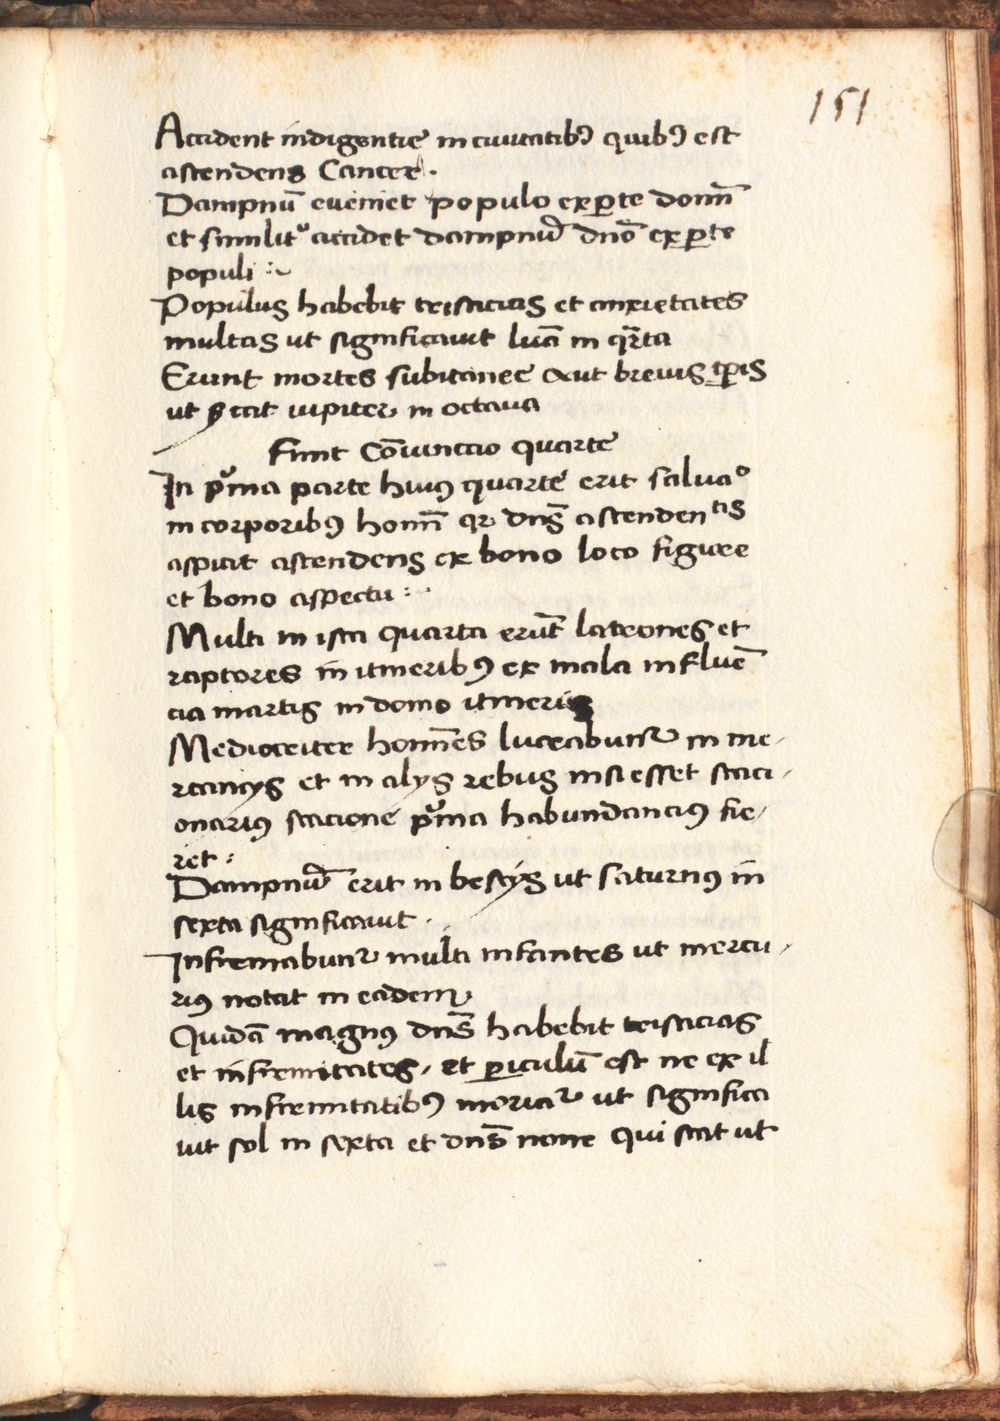 151
Accident indigentie in ciuitatibꝰ quibꝰ est
ascendens Cancer.
Dampnū eueniet populo ex ꝑte domī
et similitͦ accidet dampnū dnō ex ꝑte
populi :~
Populus habebit tristicias et anxietates
multas ut significauit lūa in qrta
Erunt mortes subitanee aut breuis tꝑis
ut stat iupiter in octaua
Fiunt Cōiunctio quarte
In pͥma parte huiꝰ quarte erit saluaᵒ
in corporibꝰ homī qr dns̄ ascendentis
aspicit ascendens ex bono loco figure
et bono aspectu :·
Multi in ista quarta erūt latrones et
raptores in itineribꝰ ex mala influē
cia martis in domo itineris
Mediocriter homīes lucrabuntr in me-
rcancijs et in alijs rebus nisi esset staci-
onariꝰ stacione pͥma habundanciꝰ fie-
ret :
Dampnū erit in bestijs ut saturnꝰ in
sexta significauit .
Infirmabuntr multi infantes ut mercu-
riꝰ notat in eadem.
Quidā magnꝰ dns̄ habebit tristicias
et infirmitates, et ꝑiculū est ne ex il
lis infirmitatibꝰ moriatr ut significa
uit sol in sexta et dns̄ none qui stat ut